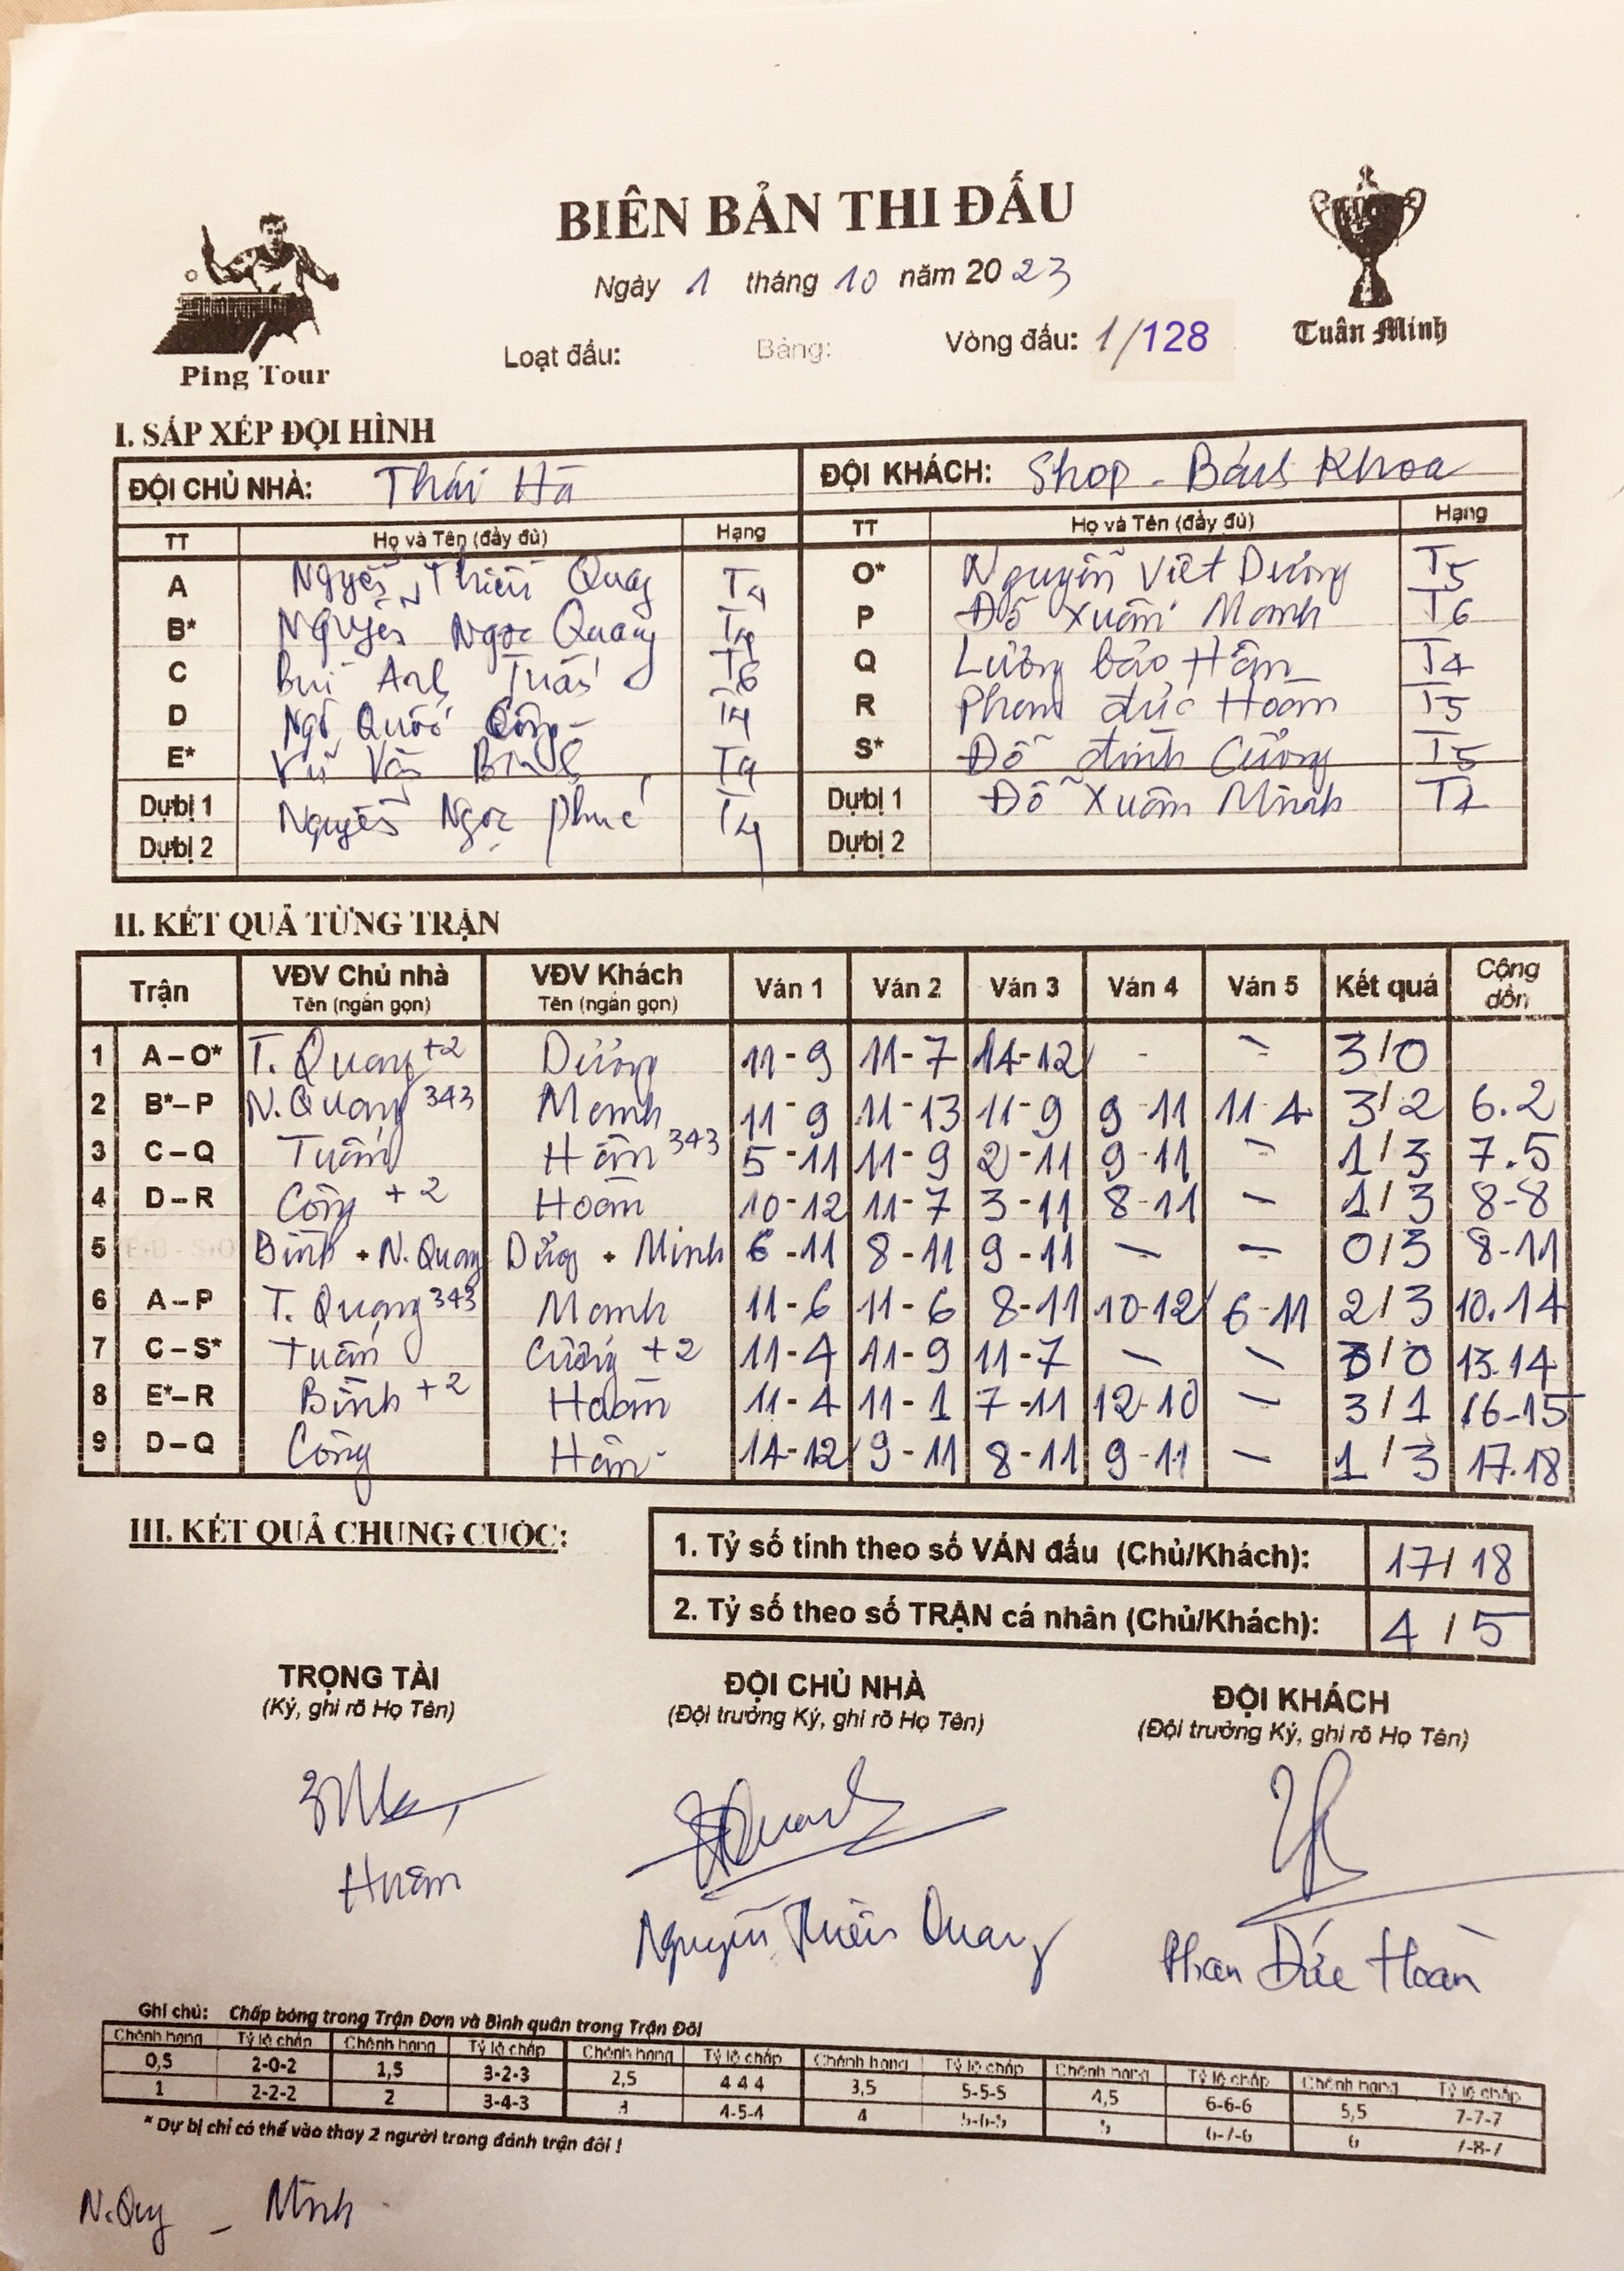 BIÊN BẢN THI ĐẤU
Ngày 1 tháng 10 năm 2023
Loạt đấu: Bảng: Vòng đấu: 1/128
Ping Tour
Tuấn Minh
I. SẮP XẾP ĐỘI HÌNH
ĐỘI CHỦ NHÀ: Thái Hà ĐỘI KHÁCH: Shop - Bách Khoa
TT Họ và Tên (đầy đủ) Hạng TT Họ và Tên (đầy đủ) Hạng
A Nguyễn Thiện Quang T4 O* Nguyễn Việt Dương T5
B* Nguyễn Ngọc Quang T4 P Đỗ Xuân Mạnh T6
C Bùi Anh Tuấn T6 Q Lương bảo Hân T4
D Ngô Quốc Công T4 R Phan đức Hoàn T5
E* Vũ Văn Bình T4 S* Đỗ đình Cường T5
Dự bị 1 Nguyễn Ngọc Phúc T4 Dự bị 1 Đỗ Xuân Minh
Dự bị 2 Dự bị 2
II. KẾT QUẢ TỪNG TRẬN
Trận VĐV Chủ nhà VĐV Khách Ván 1 Ván 2 Ván 3 Ván 4 Ván 5 Kết quả Cộng dồn
Tên (ngắn gọn) Tên (ngắn gọn)
1 A – O* T. Quang +2 Dương 11-9 11-7 14-12 - - 3/0
2 B* – P N. Quang 343 Mạnh 11-9 11-13 11-9 9-11 11-4 3/2 6.2
3 C – Q Tuấn Hân 343 5-11 11-9 2-11 9-11 - 1/3 7.5
4 D – R Công +2 Hoàn 10-12 11-7 3-11 8-11 - 1/3 8-8
5 Bình + N. Quang + Minh 6-11 8-11 9-11 - - 0/3 8-11
6 A – P T. Quang 343 Mạnh 11-6 11-6 8-11 10-12 6-11 2/3 10.14
7 C – S* Tuấn Cường +2 11-4 11-9 11-7 - - 3/0 13.14
8 E* – R Bình +2 Hoàn 11-4 11-1 7-11 12-10 - 3/1 16-15
9 D – Q Công Hân 14-12 9-11 8-11 9-11 - 1/3 17.18
III. KẾT QUẢ CHUNG CUỘC:
1. Tỷ số tính theo số VÁN đấu (Chủ/Khách): 17/18
2. Tỷ số theo số TRẬN cá nhân (Chủ/Khách): 4/5
TRỌNG TÀI ĐỘI CHỦ NHÀ ĐỘI KHÁCH
(Ký, ghi rõ Họ Tên) (Đội trưởng Ký, ghi rõ Họ Tên) (Đội trưởng Ký, ghi rõ Họ Tên)
Huân
Nguyễn Thiện Quang
Phan Đức Hoàn
Ghi chú: Chấp bóng trong Trận Đơn và Bình quân trong Trận Đôi
Chênh hạng Tỷ lệ chấp Chênh hạng Tỷ lệ chấp Chênh hạng Tỷ lệ chấp Chênh hạng Tỷ lệ chấp Chênh hạng Tỷ lệ chấp Chênh hạng Tỷ lệ chấp
0,5 2-0-2 1,5 3-2-3 2,5 4 4 4 3,5 5-5-5 4,5 6-6-6 5,5 7-7-7
1 2-2-2 2 3-4-3 3 4-5-4 4 5-6-5 5 6-7-6 6 7-8-7
* Dự bị chỉ có thể vào thay 2 người trong đánh trận đôi !
N. Quy - Minh